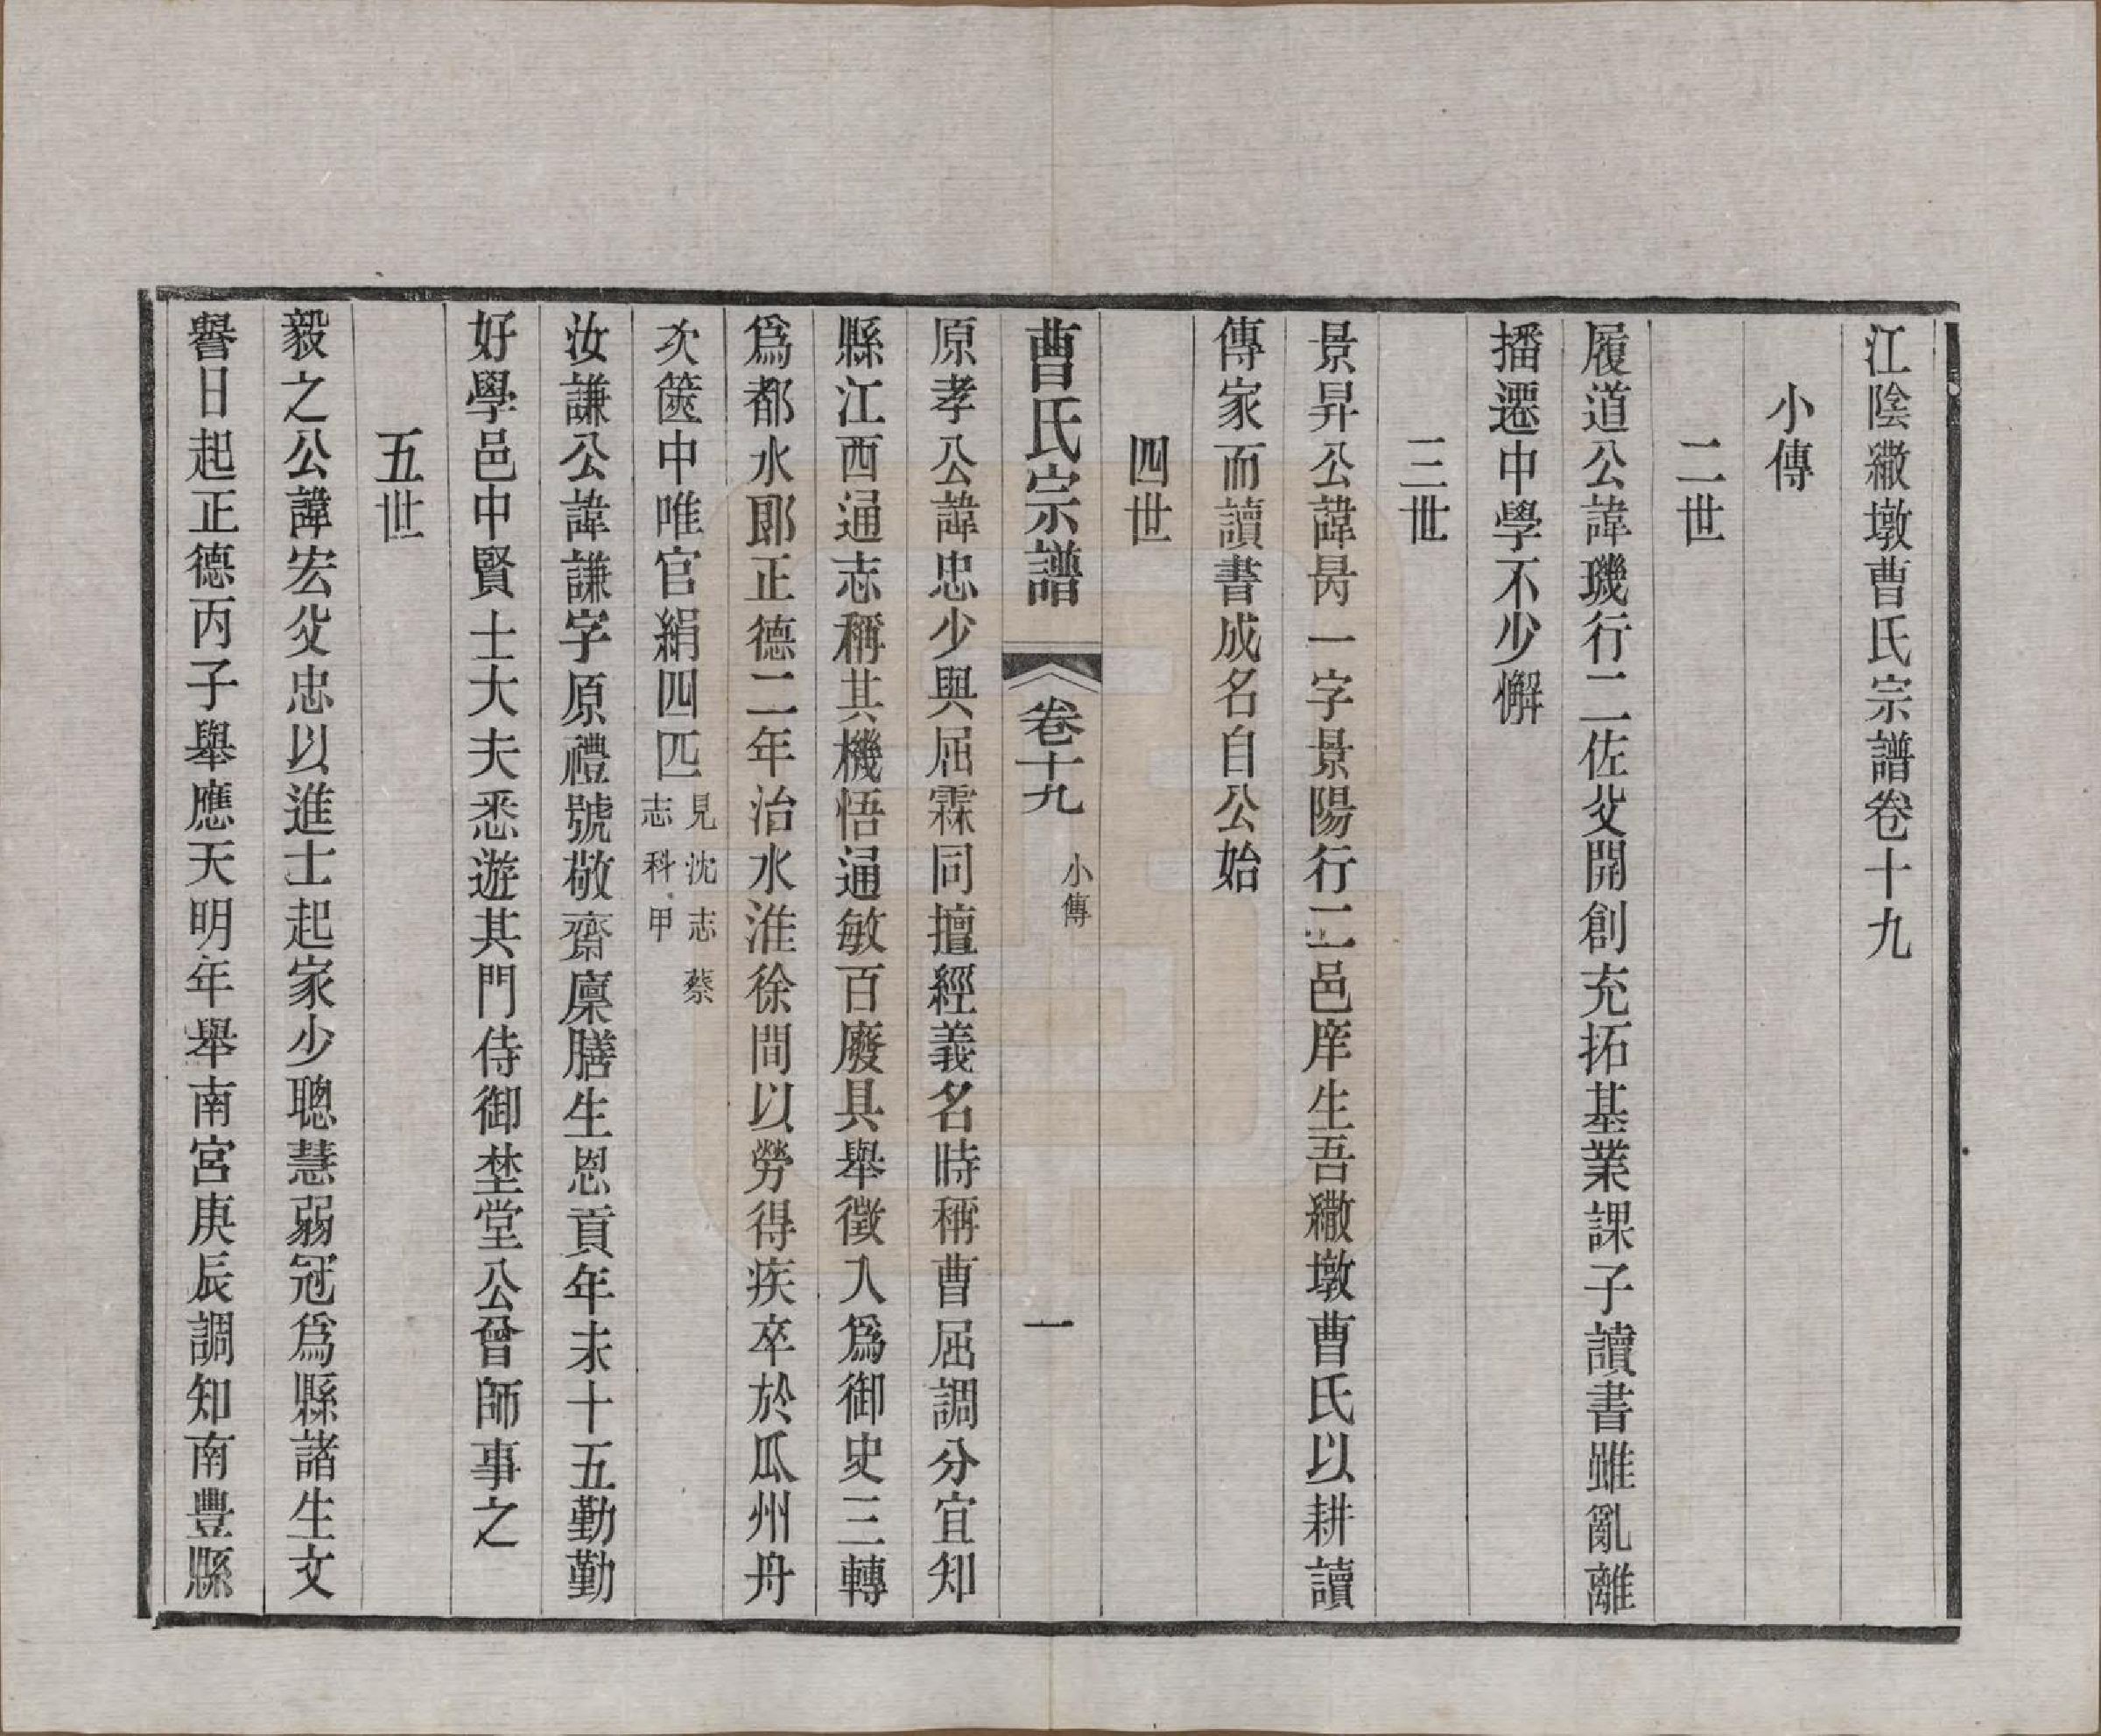 江陰繖墩曹氏宗譜卷十九
小傳
二世
履道公諱璣行二佐父開創充拓基業課子讀書雖亂離
播遷中學不少懈
三世
景昇公諱昺一字景陽行二邑庠生吾繖墩曹氏以耕讀
傳家而讀書成名自公始
四世
曹氏宗譜 卷十九 小傳 一
原孝公諱忠少與屈霖同擅經義名時稱曹屈調分宜知
縣江西通志稱其機悟通敏百廢具舉徵入爲御史三轉
爲都水郎正德二年治水淮徐間以勞得疾卒於瓜州舟
次篋中唯官絹四匹見沈志蔡志科甲
汝謙公諱謙字原禮號敬齋廩膳生恩貢年未十五勤勤
好學邑中賢士大夫悉遊其門侍御埜堂公曾師事之
五世
毅之公諱宏父忠以進士起家少聰慧弱冠爲縣諸生文
譽日起正德丙子舉應天明年舉南宮庚辰調知南豊縣